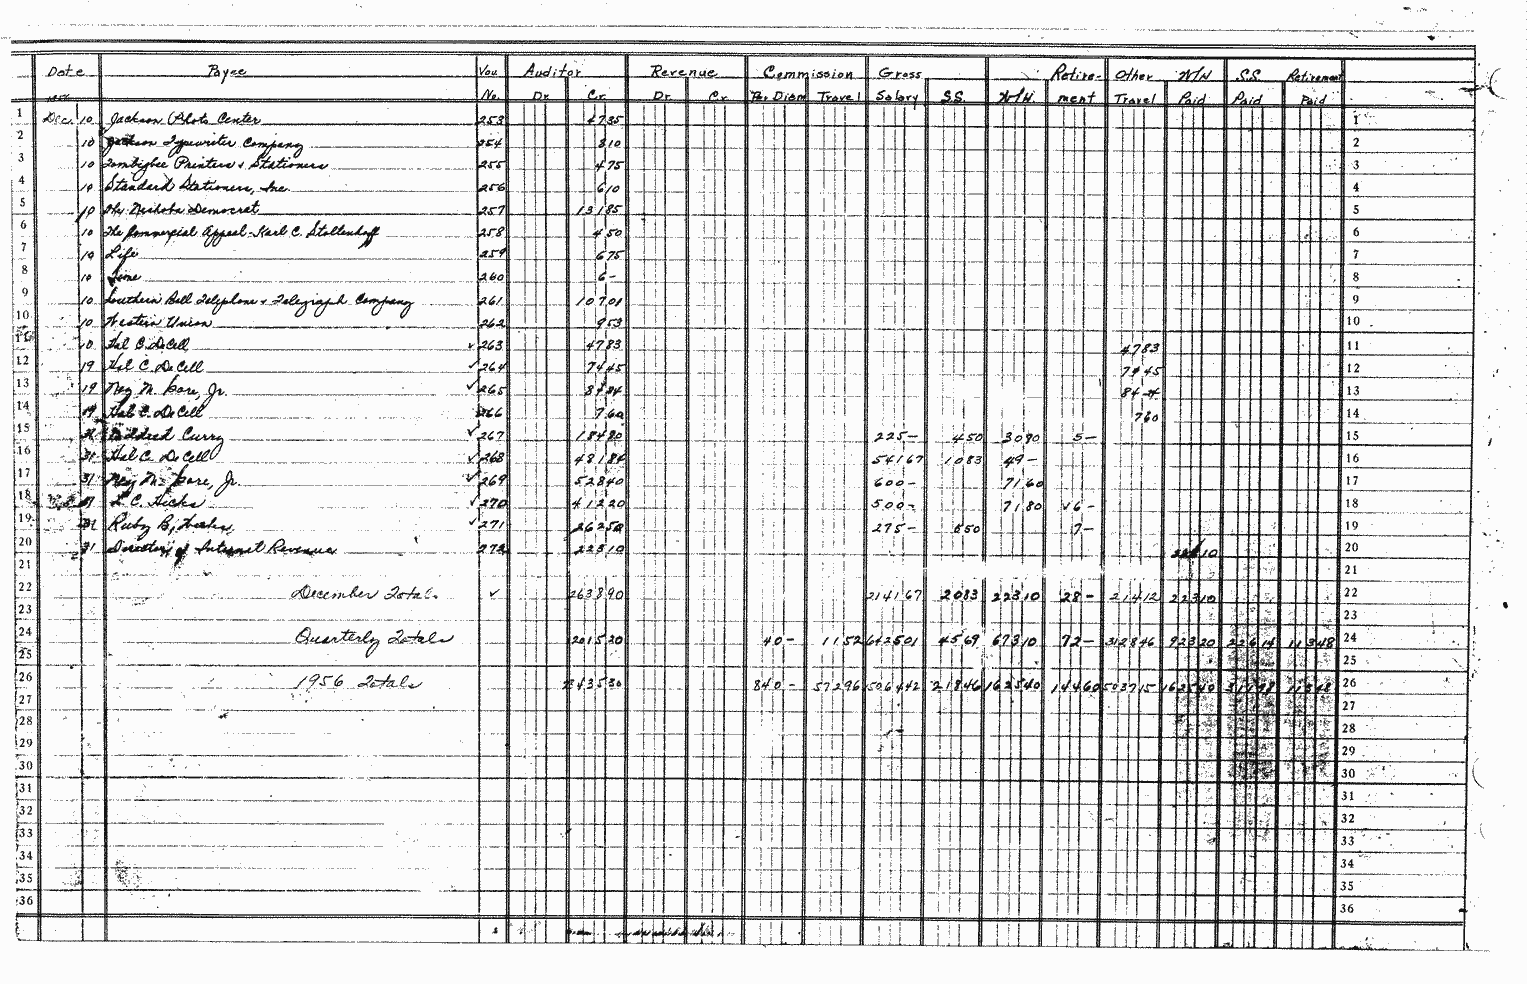 Date Payee Vou. Auditor Revenue Commission Gross Retire- Other W/H S.S. Retirement
1956 No. Dr. Cr. Dr. Cr. Per Diem Travel Salary S.S. W/H ment Travel Paid Paid Paid
1 Dec. 10 Jackson Photo Center 253 4735 1
2 10 Jackson Typewriter Company 254 810 2
3 10 Tombigbee Printers & Stationers 255 475 3
4 10 Standard Stationers, Inc. 256 610 4
5 10 The Neshoba Democrat 257 13185 5
6 10 The Commercial Appeal-Karl C. Stoltenhoff 258 450 6
7 10 Life 259 675 7
8 10 Time 260 6- 8
9 10 Southern Bell Telephone & Telegraph Company 261 10701 9
10 10 Western Union 262 953 10
11 10 Hal C. DeCell ✓ 263 4783 4783 11
12 19 Hal C. DeCell ✓ 264 7445 7445 12
13 19 Ney M. Gore, Jr. ✓ 265 8484 8484 13
14 19 Hal C. DeCell 266 760 760 14
15 31 Mildred Curry ✓ 267 18480 225- 450 3090 5- 15
16 31 Hal C. DeCell ✓ 268 48184 54167 1083 49- 16
17 31 Ney M. Gore, Jr. ✓ 269 52840 600- 7160 17
18 31 L. C. Hicks ✓ 270 41220 500- 7180 16- 18
19 31 Ruby B. Hicks ✓ 271 26250 275- 550 7- 19
20 31 Director of Internal Revenue 272 22310 22310 20
21 21
22 December Totals ✓ 263890 214167 2083 22310 28- 21412 22310 22
23 23
24 Quarterly Totals 201520 40- 1152 642501 4569 67310 72- 312846 92320 22614 11348 24
25 25
26 1956 Totals 840- 57296 21846 162540 14460 503715 162540 26
27 27
28 28
29 29
30 30
31 31
32 32
33 33
34 34
35 35
36 36